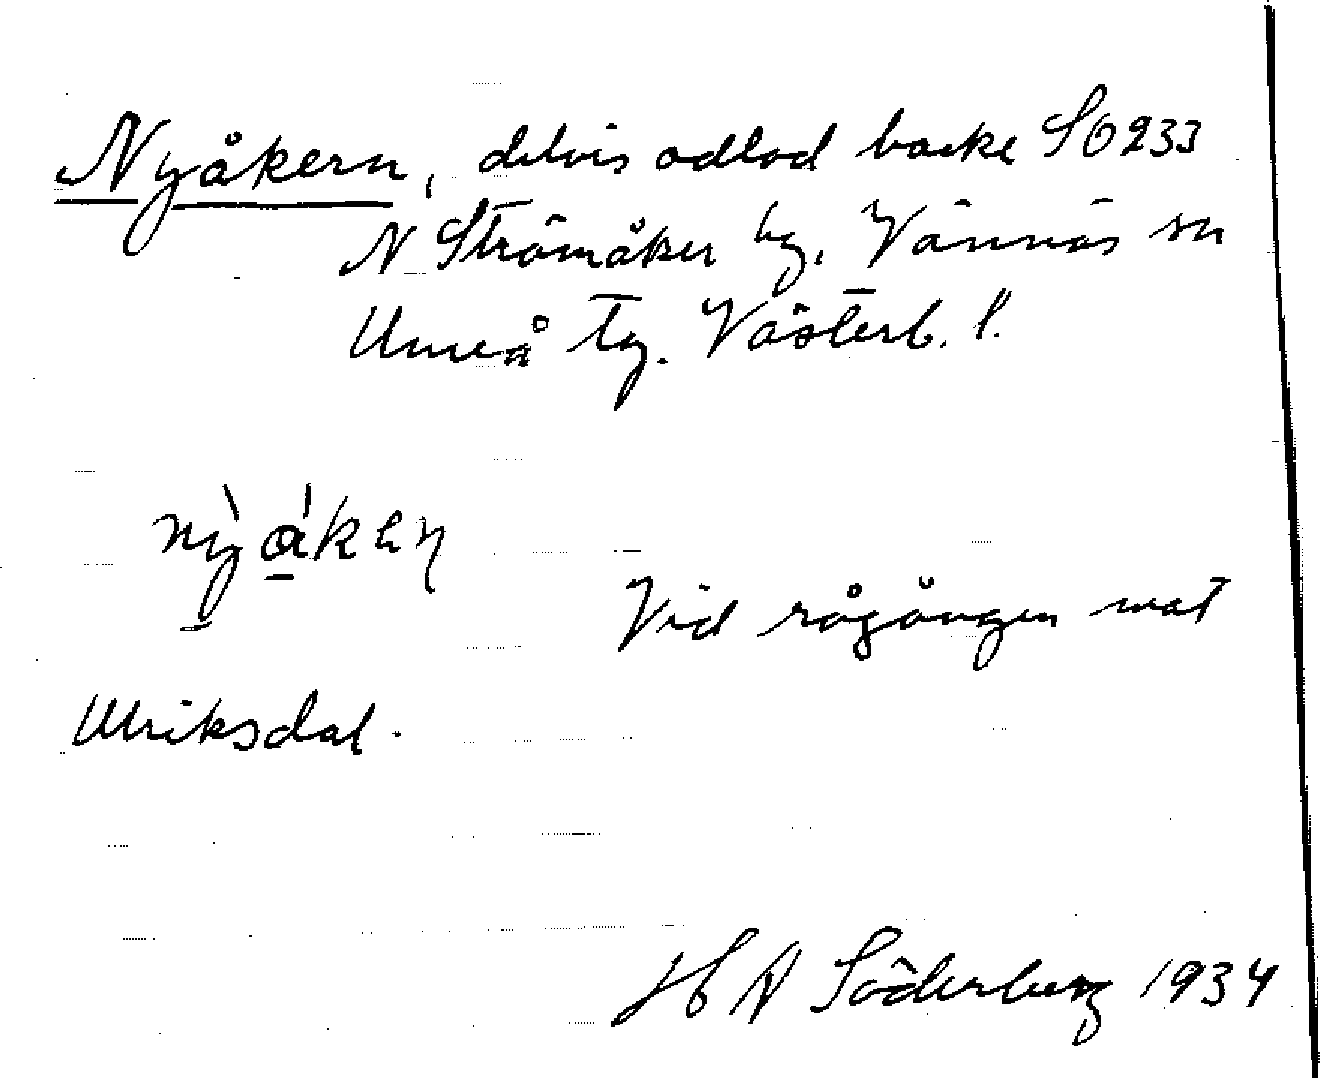 Nyåkern, delvis odlad backe SO 233
N Strömåker by, Vännäs sn
Umeå tg. Västerb. l.
Vid rågången mot
Ulriksdal.
H N Söderberg 1934